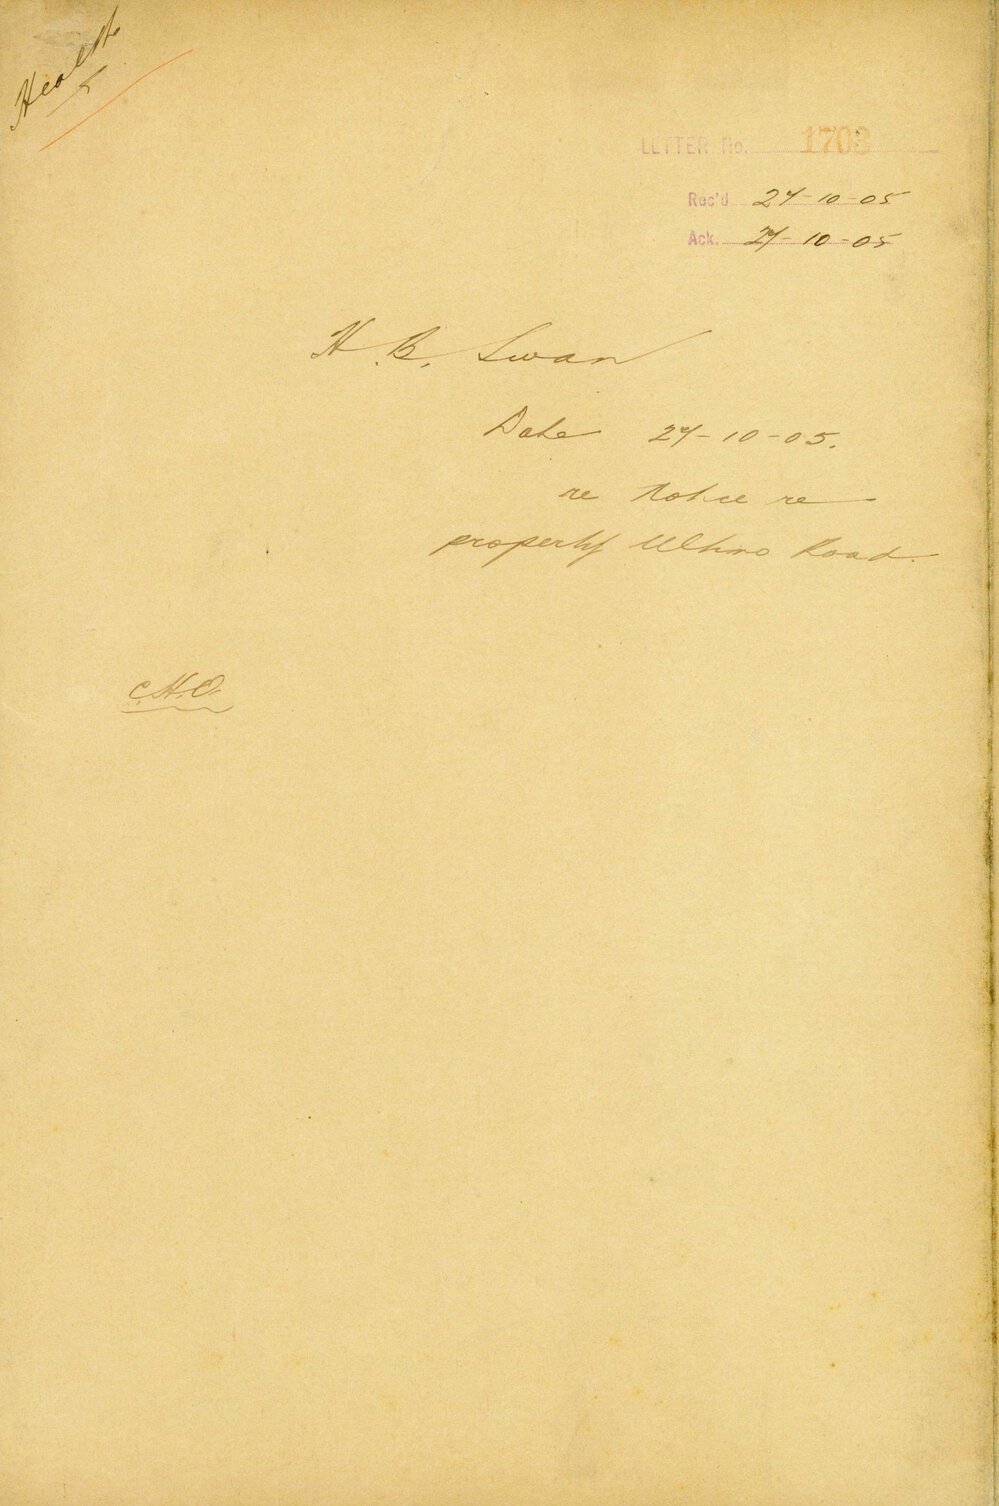 Health
LETTER No. 1703
Rec'd 27-10-05
Ack. 27-10-05
H. B. Swan
Date 27-10-05.
re Notice re
property Ultimo Road.
C.H.O.